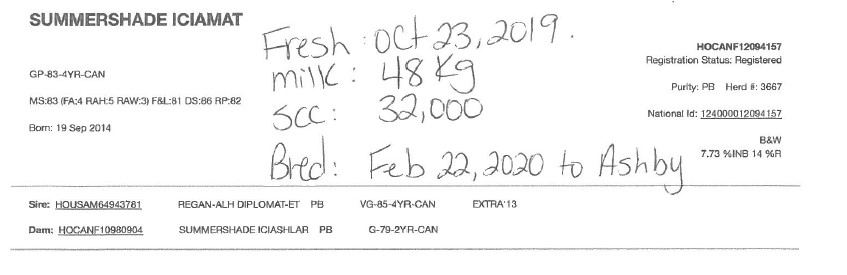 SUMMERSHADE ICIAMAT
Fresh: Oct 23, 2019.
HOCANF12094157
Registration Status: Registered
GP-83-4YR-CAN
milk: 48 Kg
Purity: PB Herd #: 3667
MS:83 (FA:4 RAH:5 RAW:3) F&L:81 DS:86 RP:82
SCC: 32,000
National Id: 124000012094157
Born: 19 Sep 2014
B&W
7.73 %INB 14 %R
Bred: Feb 22, 2020 to Ashby
Sire: HOUSAM64943781 REGAN-ALH DIPLOMAT-ET PB VG-85-4YR-CAN EXTRA'13
Dam: HOCANF10980904 SUMMERSHADE ICIASHLAR PB G-79-2YR-CAN